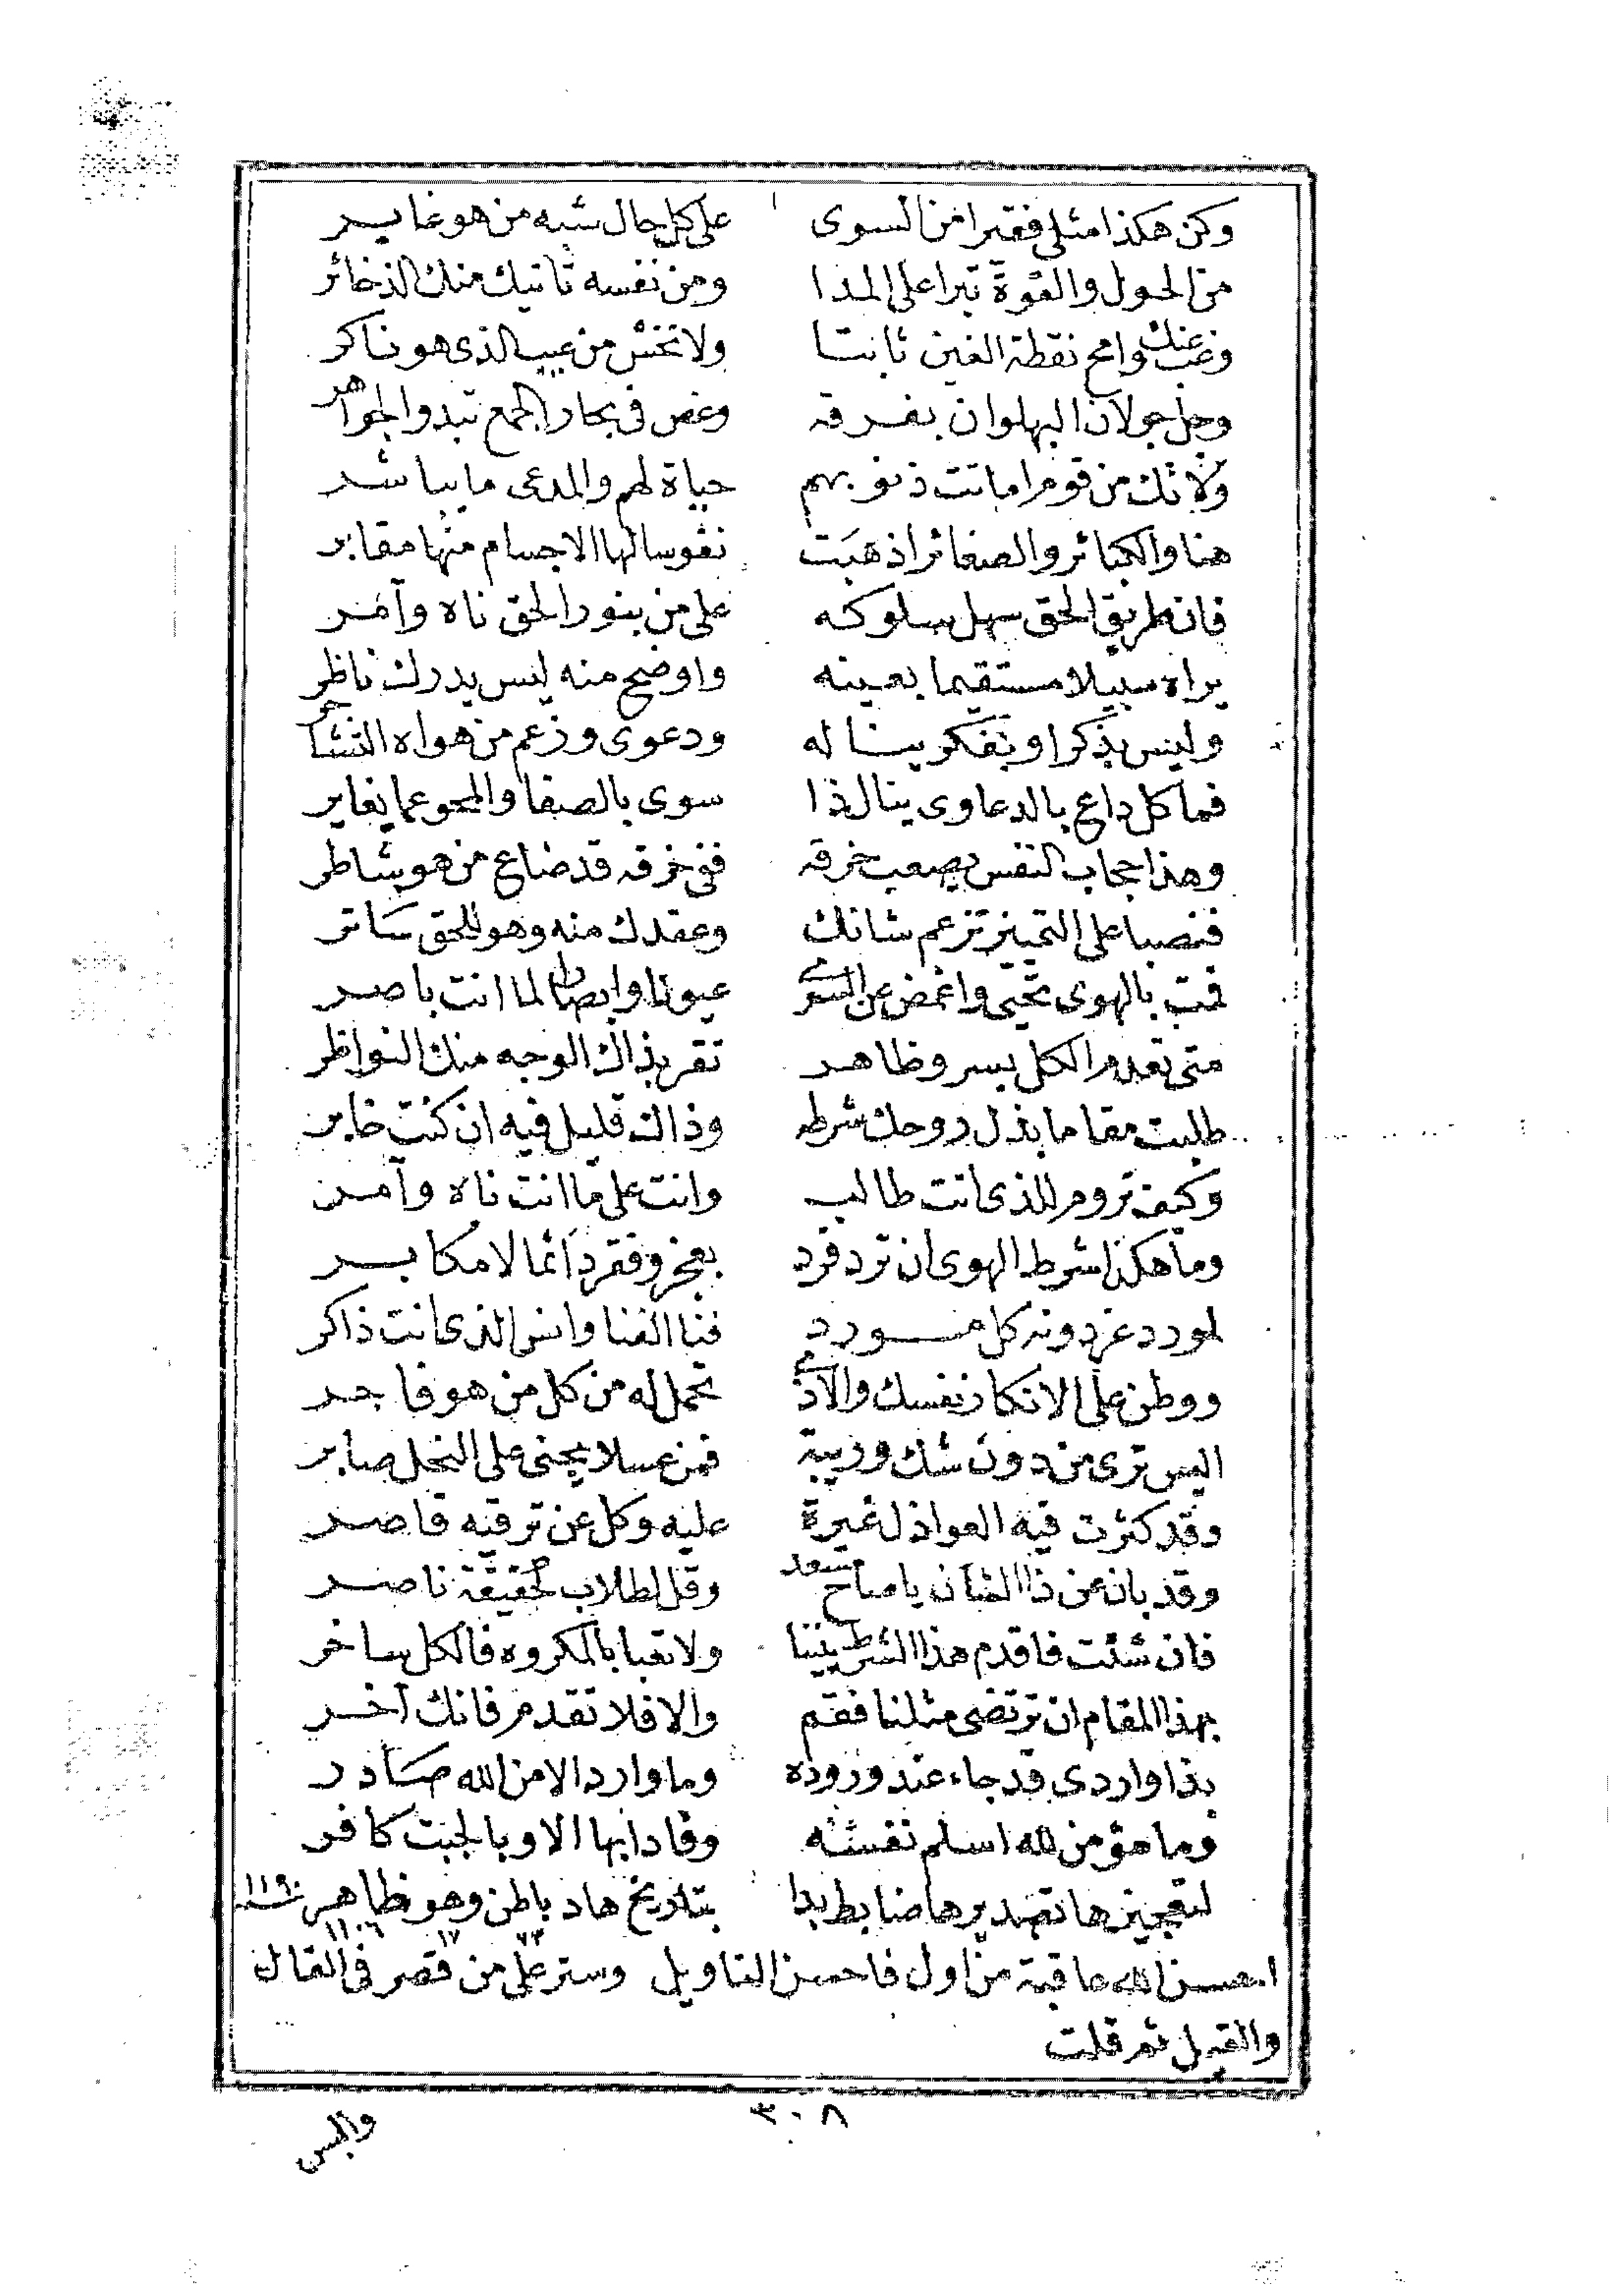 وكن هكذا مثلي فقيرا من السوى على كل حال شبه من هو غايـــر
من الحول والقوة تبرا على المدا ومن نفسه تاتيك منك الذخائر
وغب عنك وامح نقطة الغين ثابتا ولا تخش من عيب الذي هو ناكر
وجل جولان البهلوان بفـرقه وغص في بحار الجمع تبدو الجواهر
ولا تك من قوم اماتت ذنوبهم حياة لهم والمدعى ما يباشر
هنا والكبائر والصغائر اذهبت نفوسا لها الاجسام منها مقابر
فان طريق الحق سهل سلوكه على من بنور الحق ناه وآمر
يراه سبيلا مستقيما بعينه واوضح منه ليس يدرك ناظر
وليس بذكر او بفكر يناله ودعوى وزعم من هواه التشاجر
فما كل داع بالدعاوى ينال ذا سوى بالصفا والمحو عما يغاير
وهذا حجاب النفس يصعب خرقه ففي خرقه قد ضاع من هو شاطر
فنصبا على التمييز تزعم شانك وعقدك منه وهو للحق ساتر
فمت بالهوى تحيى واغمض عن السوى عيونا وابصارا لما انت باصر
متى تعدم الكل بسر وظاهر تقر بذاك الوجه منك النواظر
طلبت مقاما بذل روحك شرطه وذاك قليل فيه ان كنت خابر
وكيف تروم للذي انت طالب وانت على ما انت ناه وآمر
وما هكذا شرط الهوى ان ترد فرد بعجز وفقر دائما لا مكابـر
لمورد عز دونه كل مـــورد فنا الفنا وانس الذي انت ذاكر
ووطن على الانكار نفسك والاذى تحمل له من كل من هو فاجر
اليس ترى من دون شك وريبة فمن عسلا يجني على النحل صابر
وقد كثرت فيه العواذل غيرة عليه وكل عن ترقيه قاصر
وقد بان عن ذا الشان يا صاح مسعد وقل لطلاب الحقيقة ناصر
فان شئت فاقدم هذا الشرط بيننا ولا تعبا بالمكروه فالكل ساخر
بهذا المقام ان ترتضي مثلنا فقم والا فلا تقدم فانك آخر
بذا واردي قد جاء عند وروده وما وارد الا من الله صادر
وما مؤمن لله اسلم نفسه وقادا بها الا وبالجبت كافر
لتعجيزها تصديرها ضابط بدا بتاريخ هاد باطن وهو ظاهر ١١٩٠
١١٠٦ ١٧ ٦٣
احسن الله عاقبة من اول فاحسن التاويل وستر على من قصر في القال
والقيل ثم قلت
٣٠٨
والبس